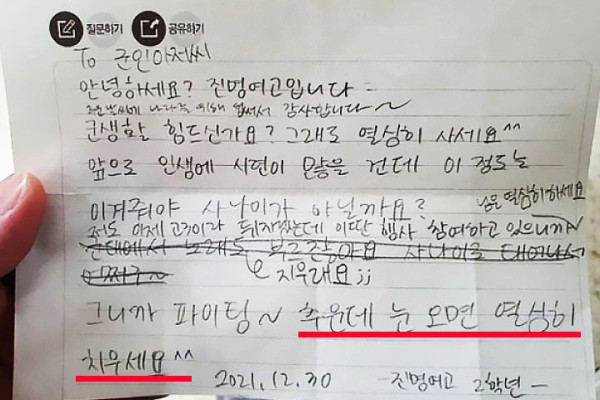 질문하기 공유하기
To 군인아저씨
안녕하세요? 진명여고입니다
추운날씨에 나라를 위해 힘써서 감사합니다~
군생활 힘드신가요? 그래도 열심히 사세요^^
앞으로 인생에 시련이 많을 건데 이 정도는
이겨줘야 사나이가 아닐까요?
저도 이제 고3이라 뒤지겠는데 이딴 행사 참여하고 있으니까~
님은 열심히하세요
군대에서 노래도 부르잖아요 사나이로 태어나서
어쩌구~
지우래요;;
그니까 파이팅~ 추운데 눈 오면 열심히
치우세요^^
2021.12.30 -진명여고 2학년-